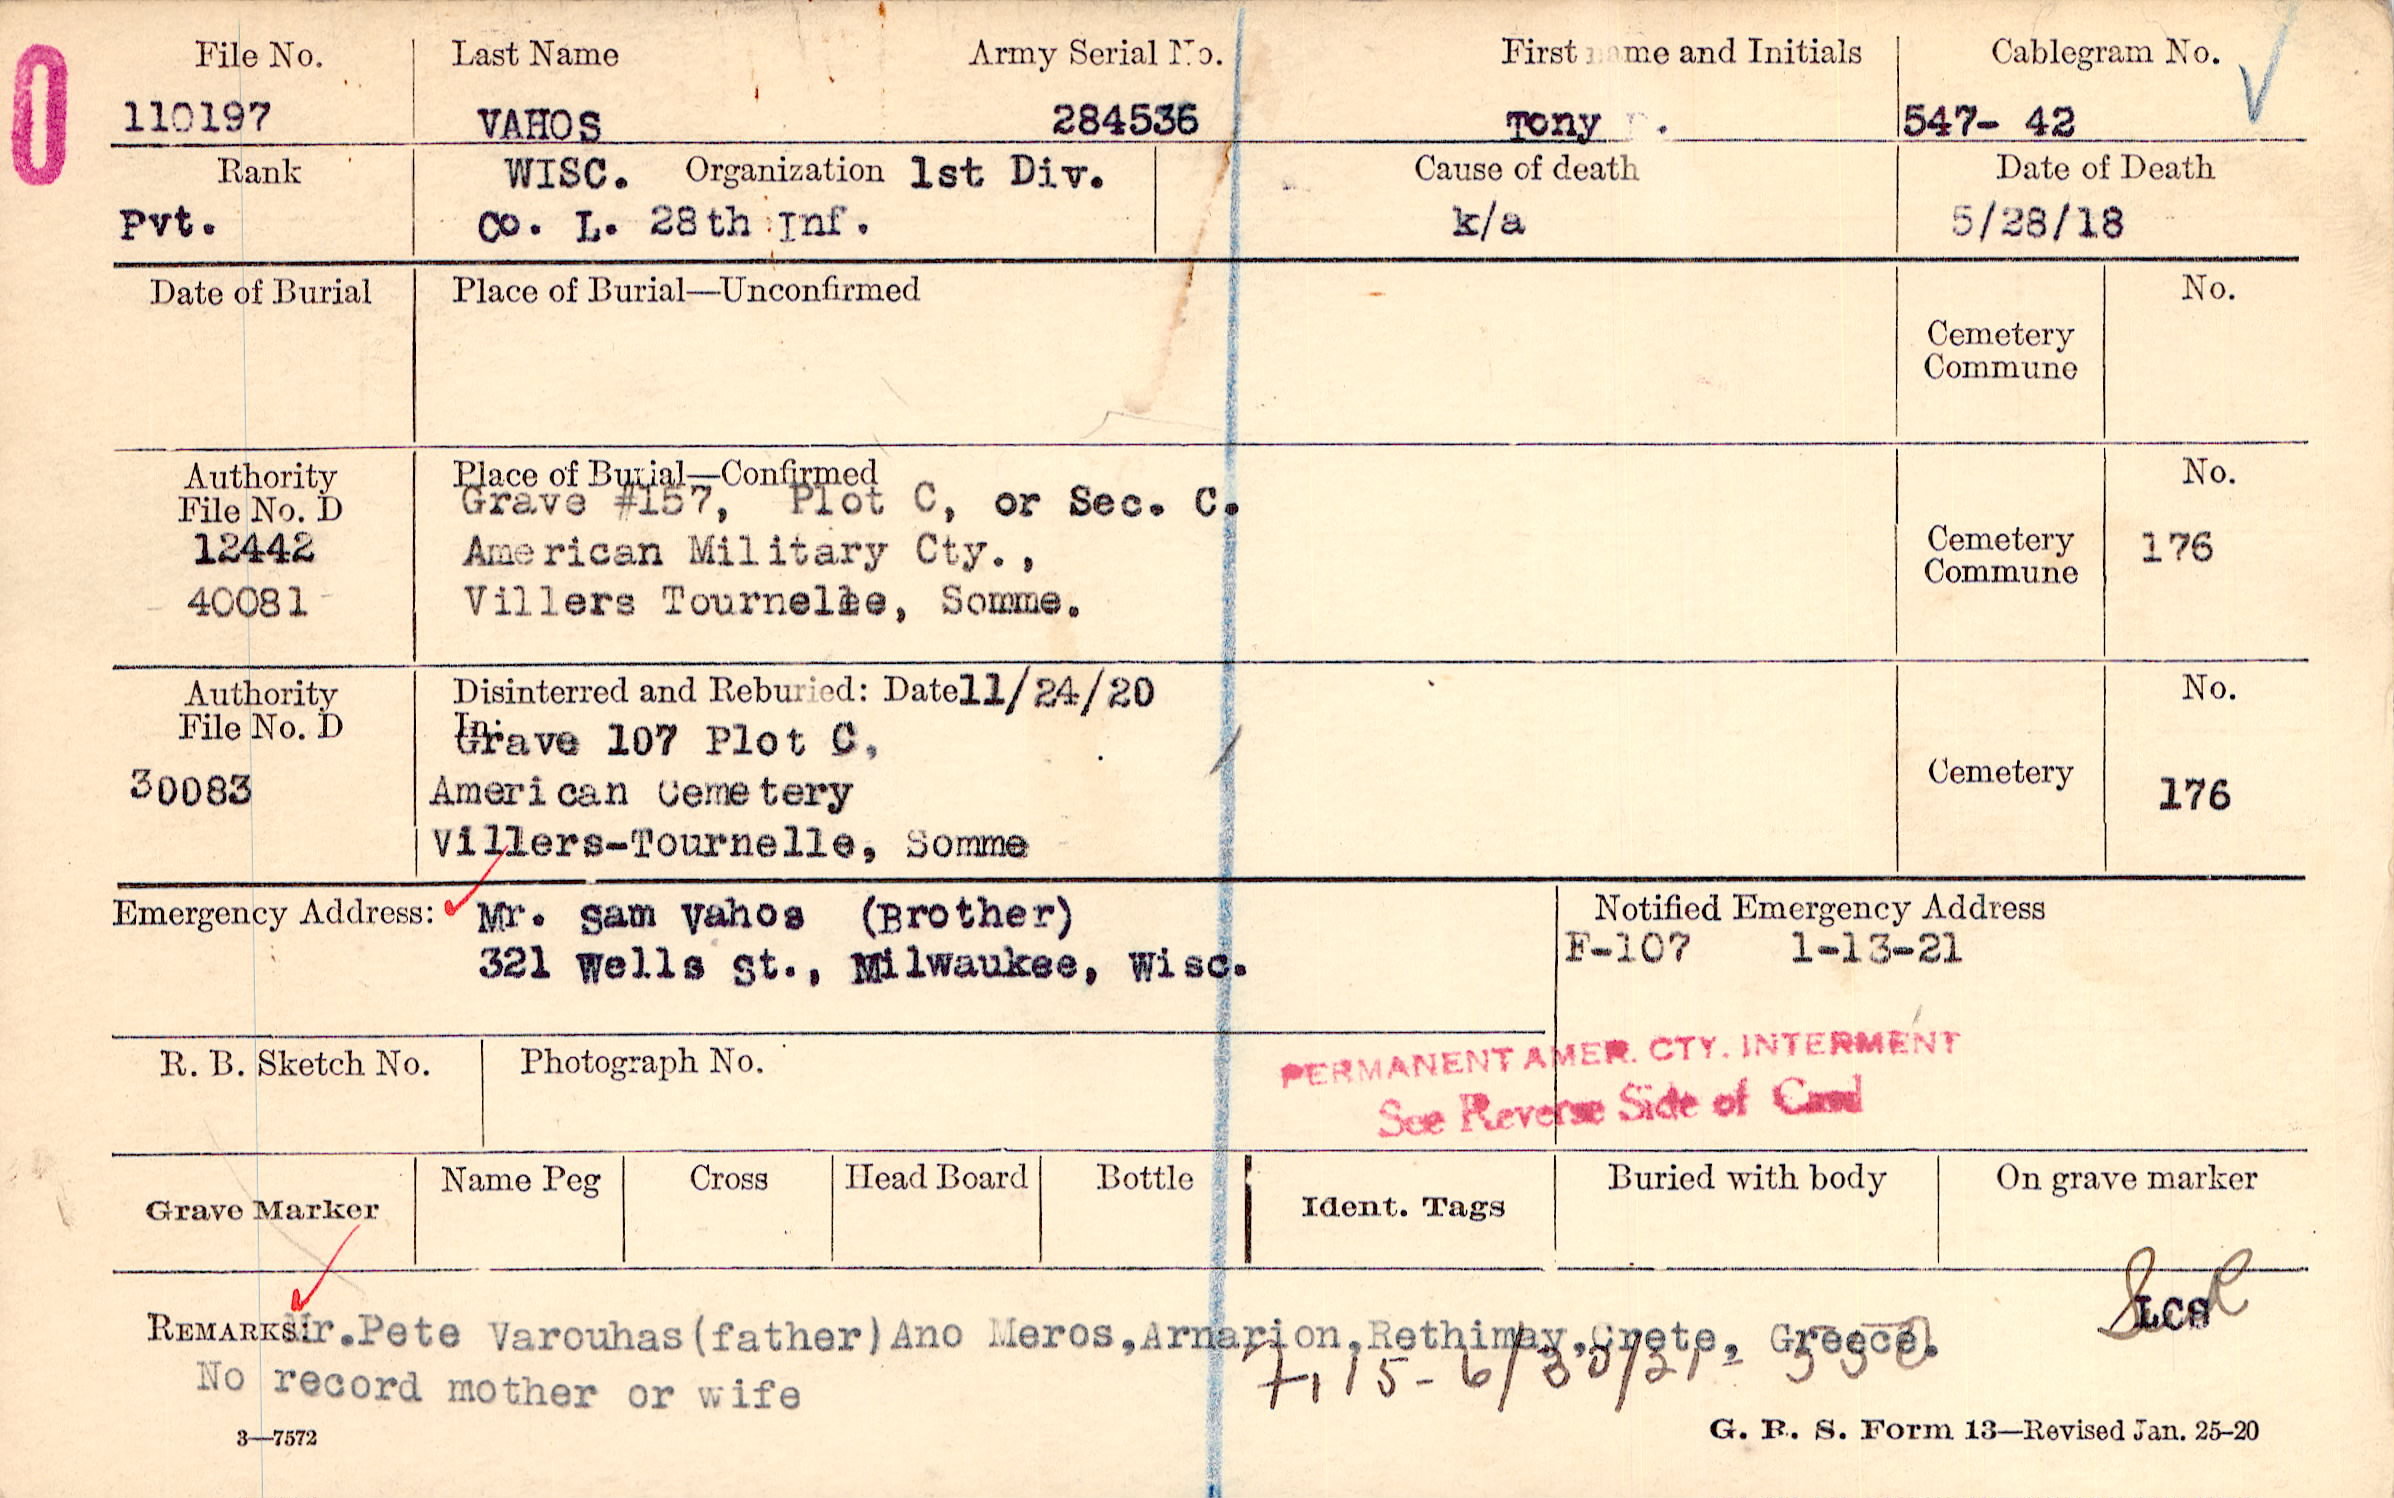 File No.
Last Name
Army Serial No.
First name and Initials
Cablegram No.
110197
VAHOS
284536
Tony
547- 42
Rank
WISC. Organization 1st Div.
Cause of death
Date of Death
Pvt.
Co. L. 28th Inf.
k/a
5/28/18
Date of Burial
Place of Burial—Unconfirmed
No.
Cemetery
Commune
Authority
File No. D
12442
40081
Place of Burial—Confirmed
Grave #157, Plot C, or Sec. C.
American Military Cty.,
Villers Tournelle, Somme.
Cemetery
Commune
No.
176
Authority
File No. D
30083
Disinterred and Reburied: Date 11/24/20
In:
Grave 107 Plot C,
American Cemetery
Villers-Tournelle, Somme
Cemetery
No.
176
Emergency Address: Mr. Sam Vahos (Brother)
321 Wells St., Milwaukee, Wisc.
Notified Emergency Address
F-107 1-13-21
R. B. Sketch No.
Photograph No.
PERMANENT AMER. CTY. INTERMENT
See Reverse Side of Card
Grave Marker
Name Peg
Cross
Head Board
Bottle
Ident. Tags
Buried with body
On grave marker
LCS
REMARKS: Mr.Pete Varouhas(father)Ano Meros,Arnarion,Rethimay,Crete, Greece.
No record mother or wife
3—7572
G. R. S. Form 13—Revised Jan. 25-20